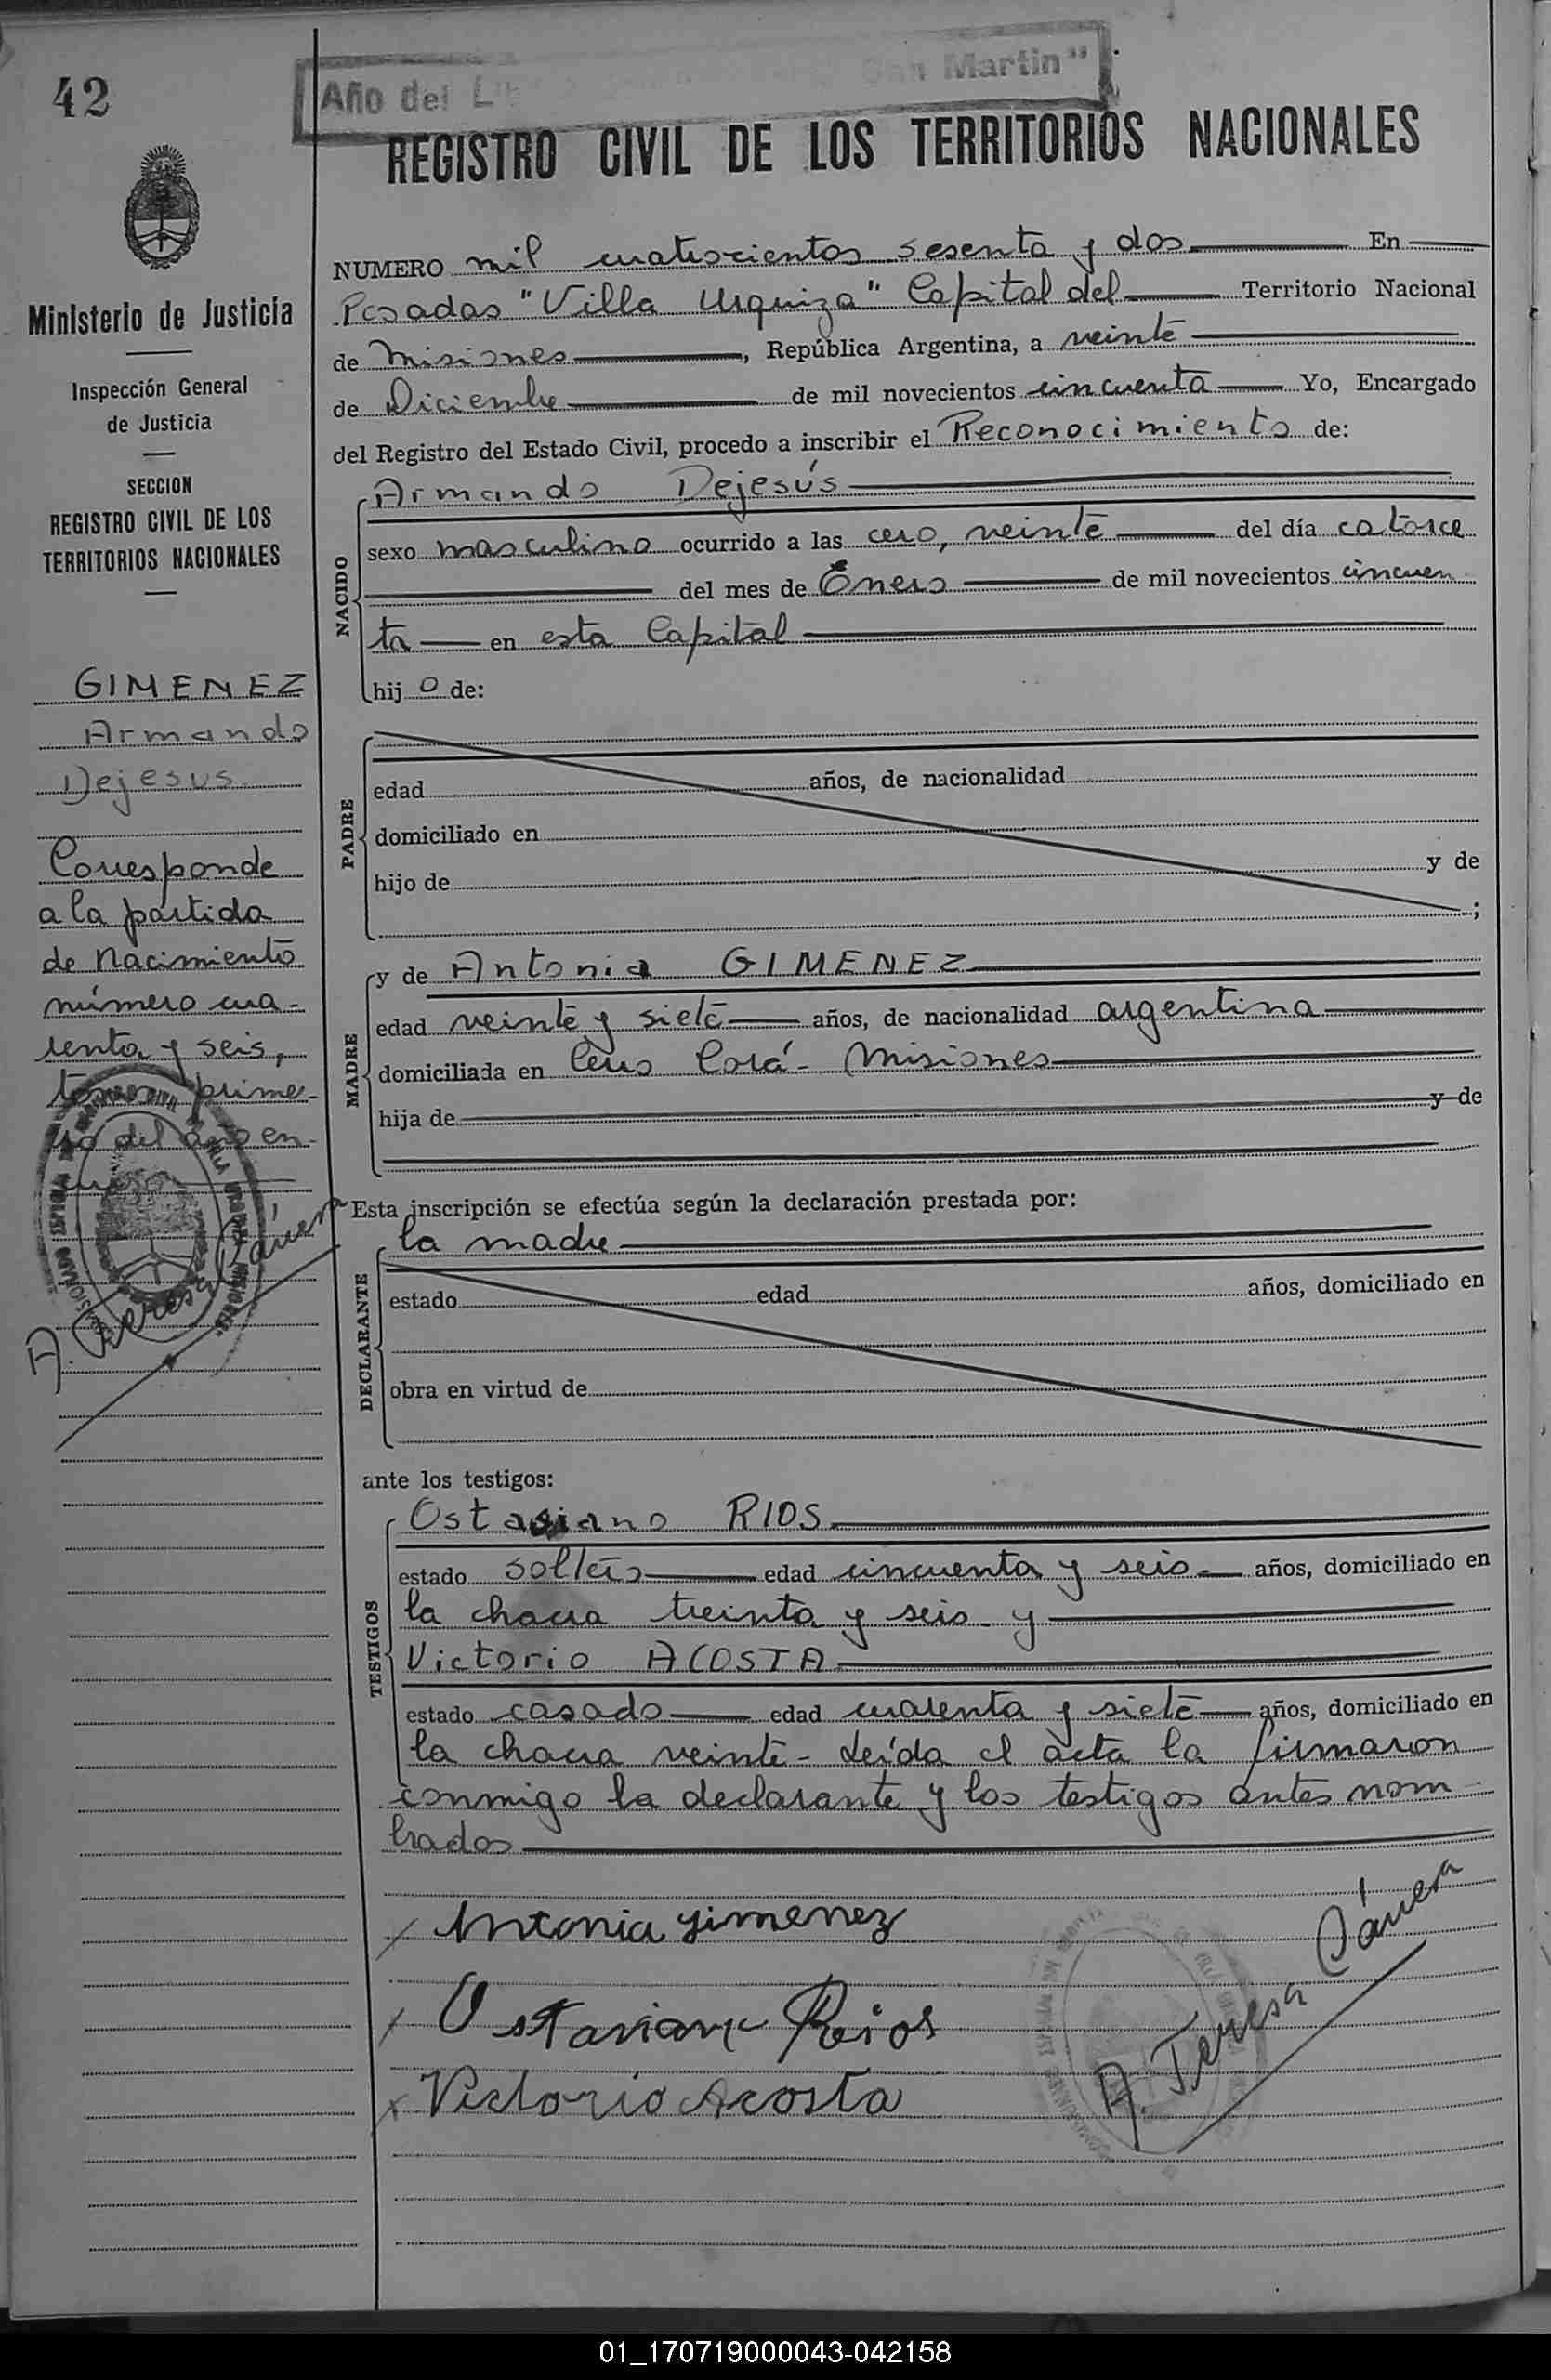 42
Año del L San Martin"
REGISTRO CIVIL DE LOS TERRITORIOS NACIONALES
Ministerio de Justicia
Inspección General
de Justicia
SECCION
REGISTRO CIVIL DE LOS
TERRITORIOS NACIONALES
GIMENEZ
Armando
Dejesus
Corresponde
a la partida
de Nacimiento
número cua-
renta y seis,
tomo prime-
ro del año en
curso
A. Teresa Cánera
NUMERO mil cuatrocientos sesenta y dos En
Posadas "Villa Urquiza" Capital del Territorio Nacional
de Misiones, República Argentina, a veinte
de Diciembre de mil novecientos cincuenta Yo, Encargado
del Registro del Estado Civil, procedo a inscribir el Reconocimiento de:
NACIDO
Armando Dejesús
sexo masculino ocurrido a las cero, veinte del día catorce
del mes de Enero de mil novecientos cincuen
ta en esta Capital
hijo de:
PADRE
edad años, de nacionalidad
domiciliado en
hijo de y de
;
MADRE
y de Antonia GIMENEZ
edad veinte y siete años, de nacionalidad argentina
domiciliada en Cerro Corá - Misiones
hija de y de
Esta inscripción se efectúa según la declaración prestada por:
DECLARANTE
la madre
estado edad años, domiciliado en
obra en virtud de
ante los testigos:
TESTIGOS
Ostaviano RIOS
estado soltero edad cincuenta y seis años, domiciliado en
la chacra treinta y seis y
Victorio ACOSTA
estado casado edad cuarenta y siete años, domiciliado en
la chacra veinte - Leída el acta la firmaron
conmigo la declarante y los testigos antes nom-
brados
Antonia Jimenez
Ostaviano Rios
Victorio Acosta
A. Teresa Cánera
01_170719000043-042158